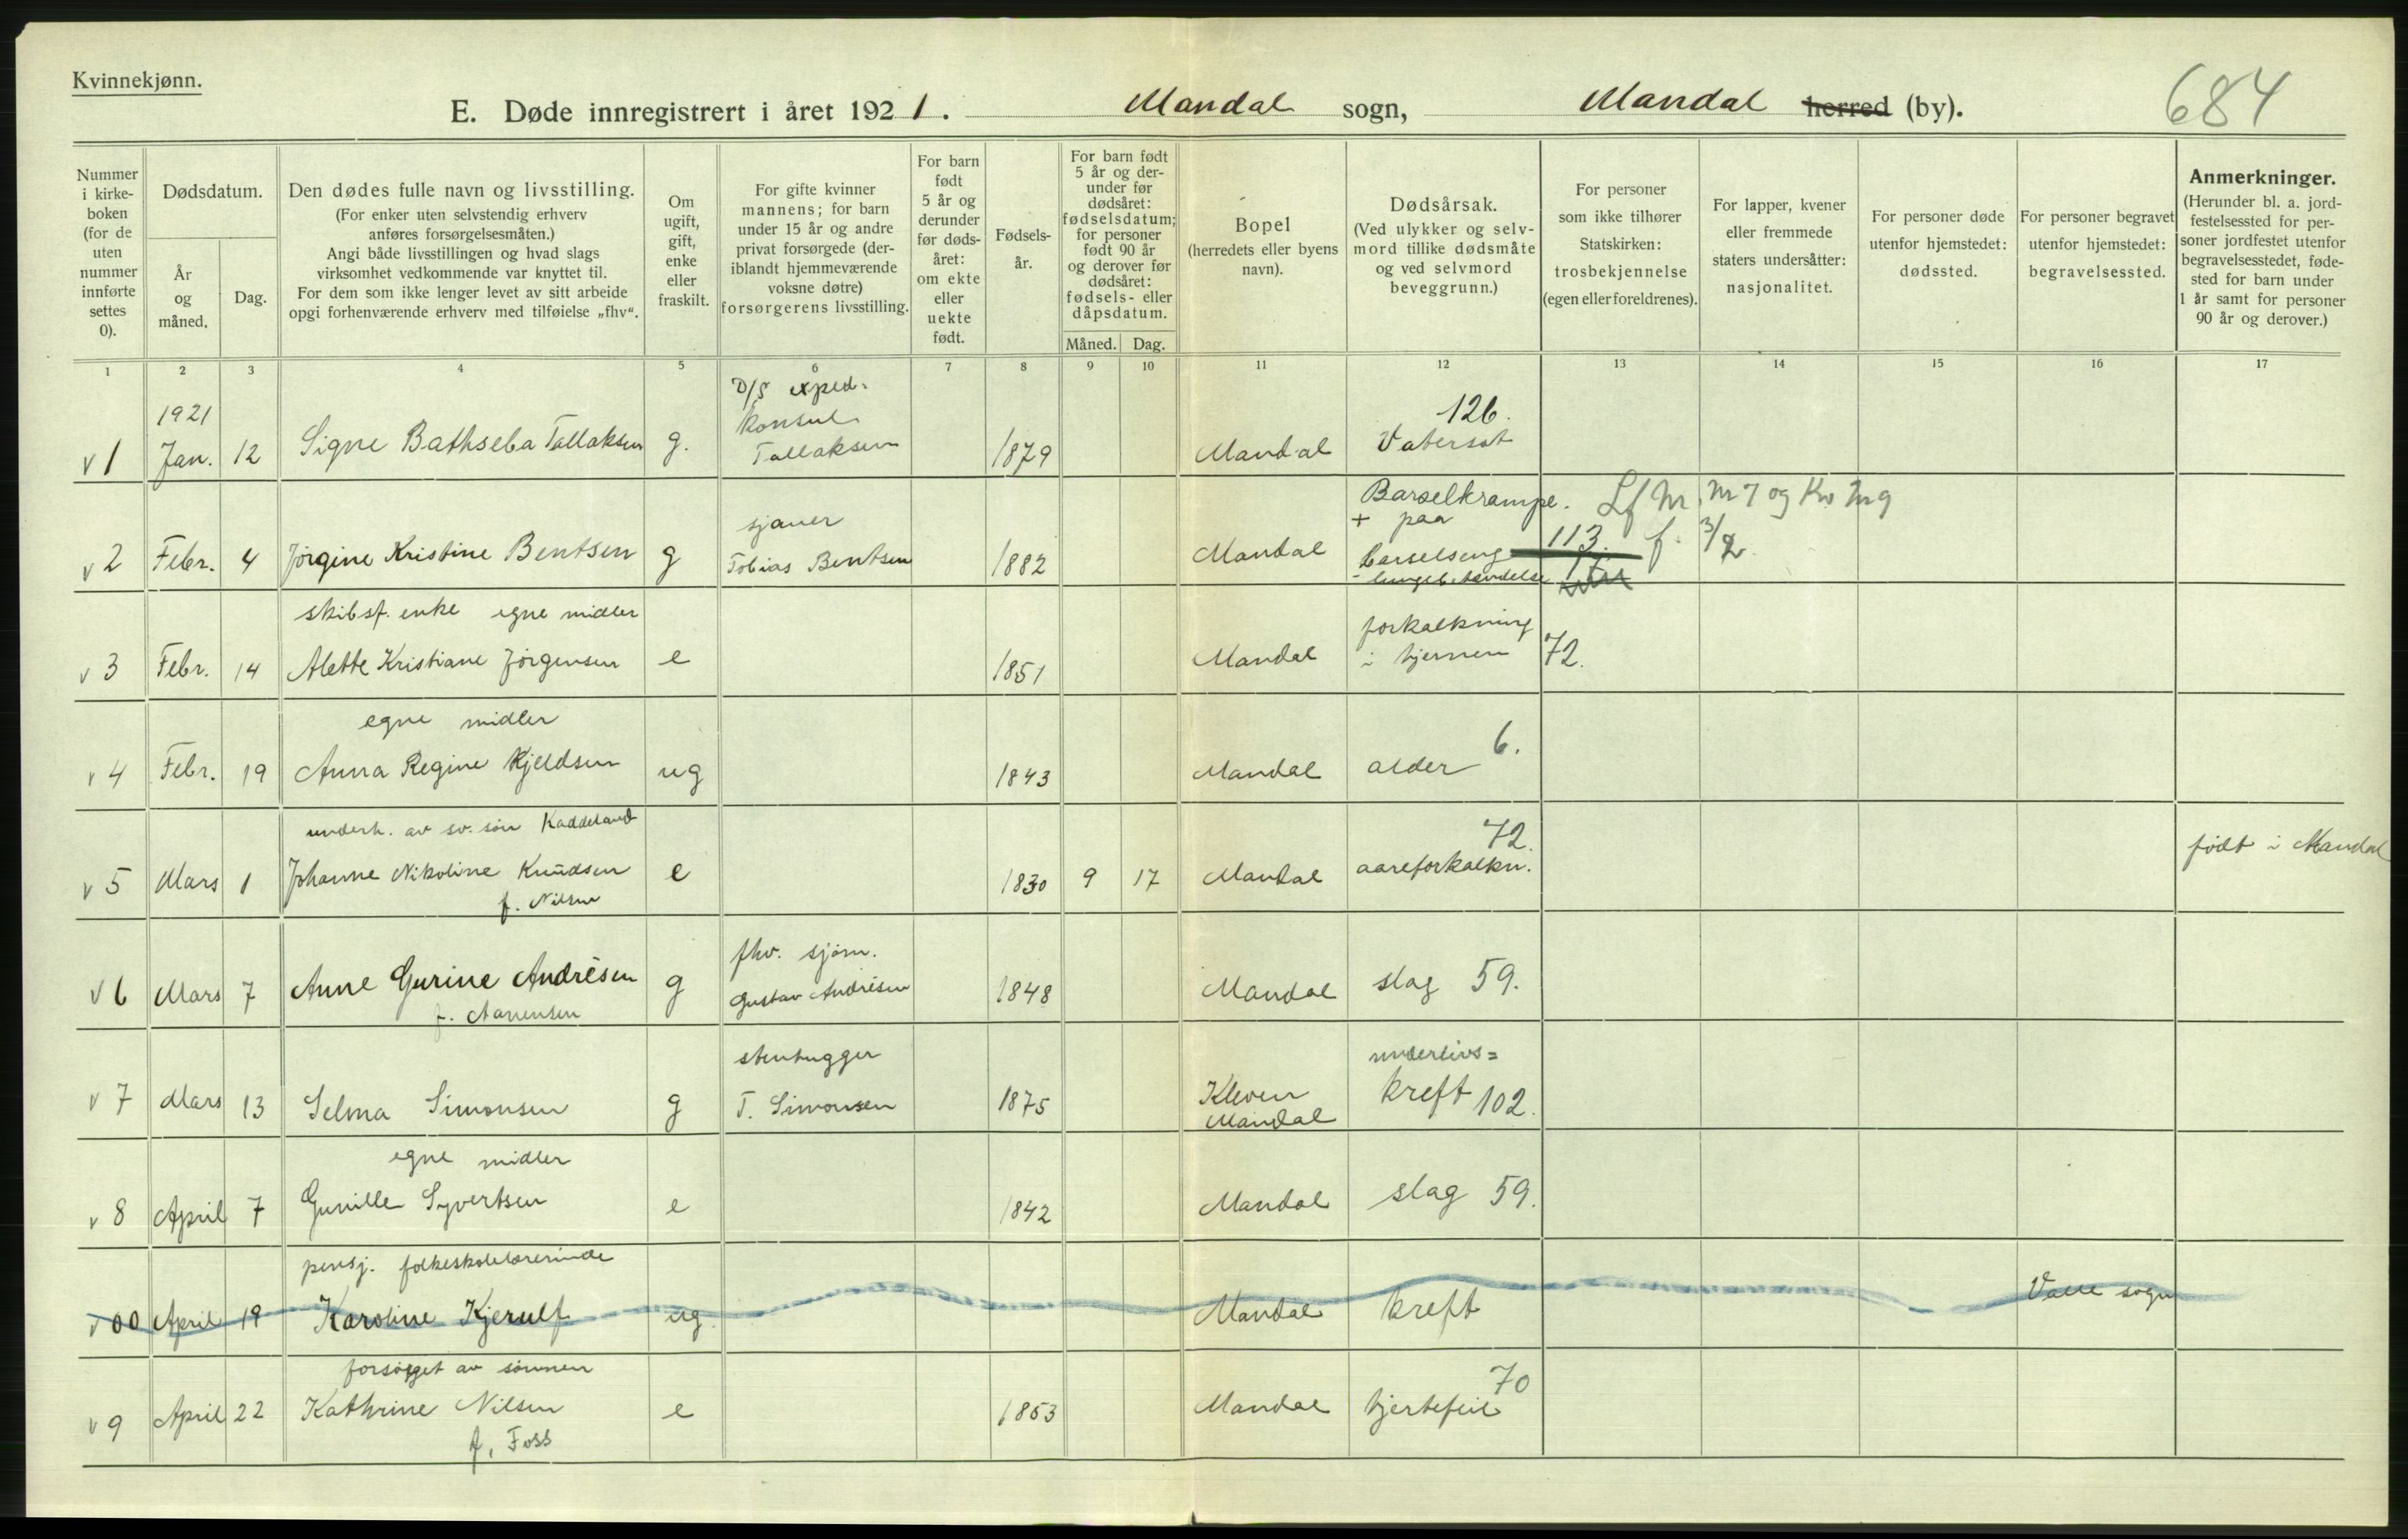 Kvinnekjønn.
E. Døde innregistrert i året 1921. Mandal sogn, Mandal herred (by).
684
Nummer i kirke-boken (for de uten nummer innførte settes 0).
Dødsdatum.
År og måned.
Dag.
Den dødes fulle navn og livsstilling.
(For enker uten selvstendig erhverv anføres forsørgelsesmåten.)
Angi både livsstillingen og hvad slags virksomhet vedkommende var knyttet til.
For dem som ikke lenger levet av sitt arbeide opgi forhenværende erhverv med tilføielse „fhv“.
Om ugift, gift, enke eller fraskilt.
For gifte kvinner mannens; for barn under 15 år og andre privat forsørgede (der-iblandt hjemmeværende voksne døtre) forsørgerens livsstilling.
For barn født 5 år og derunder før døds-året: om ekte eller uekte født.
Fødsels-år.
For barn født 5 år og der-under før dødsåret: fødselsdatum; for personer født 90 år og derover før dødsåret: fødsels- eller dåpsdatum.
Måned. Dag.
Bopel (herredets eller byens navn).
Dødsårsak.
(Ved ulykker og selv-mord tillike dødsmåte og ved selvmord beveggrunn.)
For personer som ikke tilhører Statskirken: trosbekjennelse (egen eller foreldrenes).
For lapper, kvener eller fremmede staters undersåtter: nasjonalitet.
For personer døde utenfor hjemstedet: dødssted.
For personer begravet utenfor hjemstedet: begravelsessted.
Anmerkninger.
(Herunder bl. a. jord-festelsessted for per-soner jordfestet utenfor begravelsesstedet, føde-sted for barn under 1 år samt for personer 90 år og derover.)
1 2 3 4 5 6 7 8 9 10 11 12 13 14 15 16 17
D/S exped. konsul
1921 126.
v 1 Jan. 12 Signe Bathseba Tallaksen g. Tallaksen 1879 Mandal Vatersot
Barselkrampe. Lf Nr. M 7 og Kv
sjauer + paa
v 2 Febr. 4 Jørgine Kristine Bentsen g Tobias Bentsen 1882 Mandal barselseng 113. f. 3/2
skibsf. enke egne midler forkalkning
v 3 Febr. 14 Alette Kristiane Jörgensen e 1851 Mandal i hjernen 72.
egne midler 6.
v 4 Febr. 19 Anna Regine Kjeldsen ug 1843 Mandal alder
underh. av sv. søn Kaddeland 72.
v 5 Mars 1 Johanne Nikoline Knudsen e 1830 9 17 Mandal aareforkalkn. født i Mandal
f. Nilsen
fhv. sjøm.
v 6 Mars 7 Anne Gurine Andrésen g Gustav Andrésen 1848 Mandal slag 59.
f. Aanensen
stenhugger underlivs=
v 7 Mars 13 Selma Simonsen g T. Simonsen 1875 Kleven Mandal kreft 102.
egne midler
v 8 April 7 Gunille Syvertsen e 1842 Mandal slag 59.
pensj. folkeskolelærerinde
v 00 April 19 Karoline Kjerulf ug Mandal kreft Valle sogn
forsørget av sønnen 70
v 9 April 22 Kathrine Nilsen e 1853 Mandal hjertefeil
f. Foss